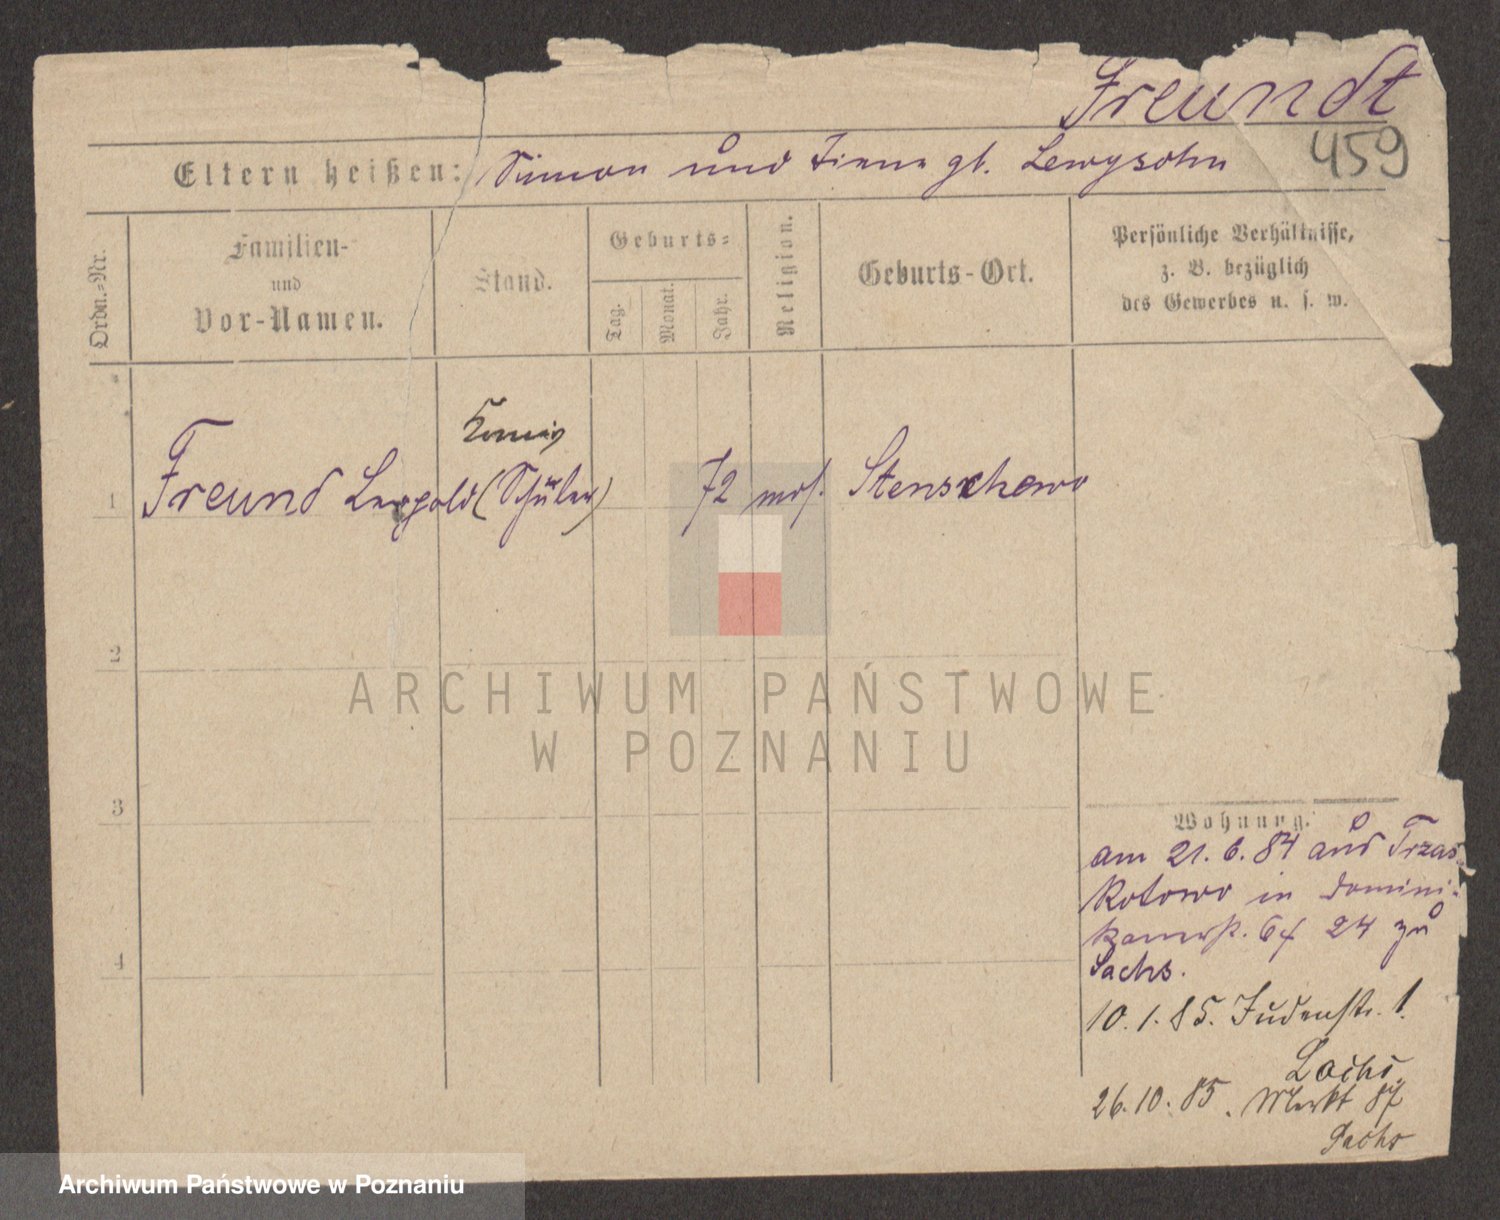 Freundt
459
Eltern heißen: Simon und Zinna gb. Lewysohn
Ordn.-Nr.
Familien-
und
Vor-Namen.
Stand.
Geburts-
Tag.
Monat.
Jahr.
Religion.
Geburts-Ort.
Persönliche Verhältnisse,
z. B. bezüglich
des Gewerbes u. s. w.
1
Freund Leopold (Schüler) 72 mos. Stenschewo
2
3
4
ARCHIWUM PAŃSTWOWE
W POZNANIU
Wohnung.
am 21. 6. 84 aus Trzas-
kotowo in Domini-
kanerstr. 24 zu
Sachs.
10. 1. 85. Judenstr. 1.
Sachs.
26. 10. 85. Markt 87
Sachs
Archiwum Państwowe w Poznaniu